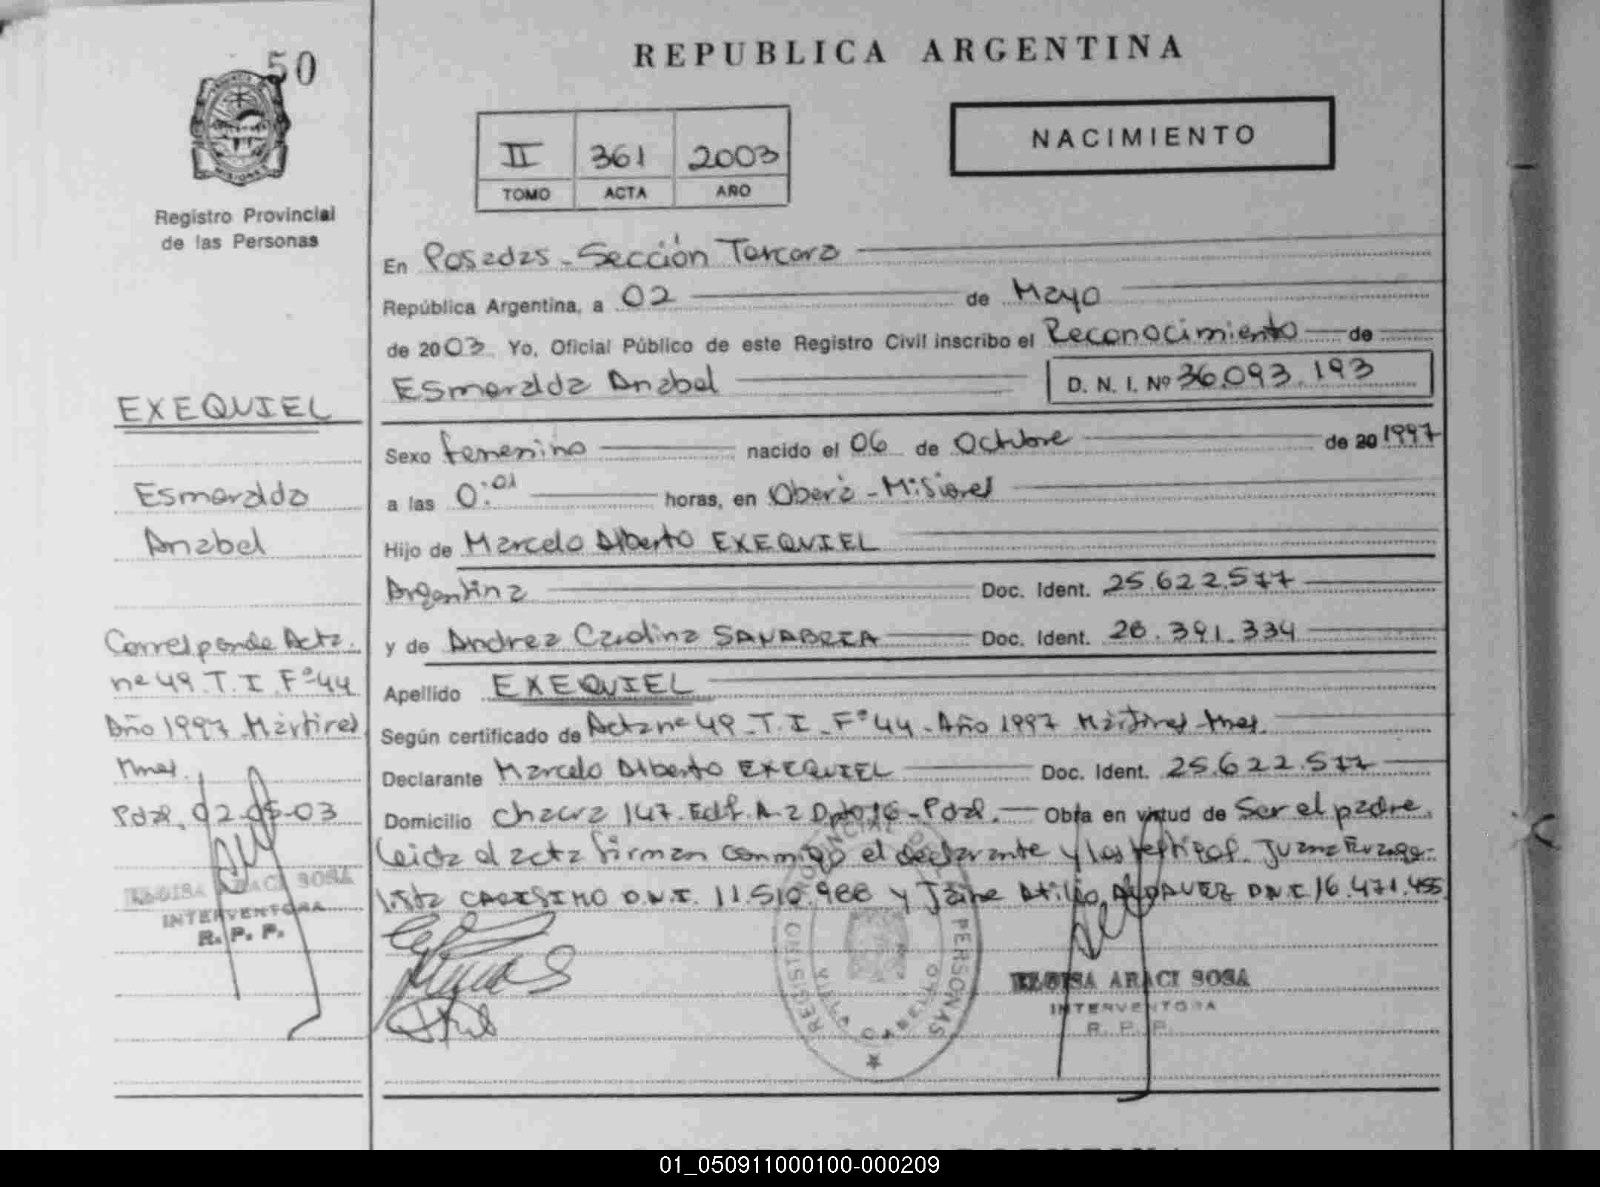 50
REPUBLICA ARGENTINA
II 361 2003
TOMO ACTA AÑO
NACIMIENTO
Registro Provincial
de las Personas
En Posadas - Sección Tercera
República Argentina, a 02 de Mayo
de 2003 Yo, Oficial Público de este Registro Civil inscribo el Reconocimiento de
Esmeralda Anabel D. N. I. Nº 36.093.193
EXEQUIEL
Esmeralda
Anabel
Corresponde Acta
nº 49 T. I Fº 44
Año 1997 Mártires
Mnes.
Pdas. 02-05-03
ELOISA ARACI SOSA
INTERVENTORA
R. P. P.
Sexo femenino nacido el 06 de Octubre de 20 1997
a las 0:01 horas, en Oberá - Misiones
Hijo de Marcelo Alberto EXEQUIEL
Argentina Doc. Ident. 25.622.577
y de Andrea Carolina SANABRIA Doc. Ident. 26.391.334
Apellido EXEQUIEL
Según certificado de Acta nº 49 - T. I - Fº 44 - Año 1997 Mártires Mnes.
Declarante Marcelo Alberto EXEQUIEL Doc. Ident. 25.622.577
Domicilio Chacra 147 - Edf. A-2 Dpto 16 - Pdas. Obra en virtud de Ser el padre.
Leida el acta firman conmigo el declarante y los testigos. Juana Evange-
lista D.N.I. 11.510.988 y Atilio D.N.I 16.471.455
REGISTRO PROVINCIAL DE LAS PERSONAS
ELOISA ARACI SOSA
INTERVENTORA
R. P. P.
01_050911000100-000209